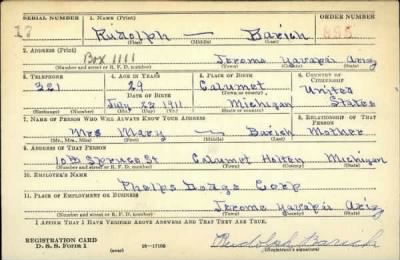 SERIAL NUMBER 1. NAME (Print) ORDER NUMBER
27 Rudolph — Barich 885
(First) (Middle) (Last)
2. ADDRESS (Print)
Box 1111 Jerome Yavapai Ariz
(Number and street or R. F. D. number) (Town) (County) (State)
3. TELEPHONE 4. AGE IN YEARS 5. PLACE OF BIRTH 6. COUNTRY OF CITIZENSHIP
321 29 Calumet United
DATE OF BIRTH (Town or county)
July 23 1911 Michigan States
(Exchange) (Number) (Mo.) (Day) (Yr.) (State or country)
7. NAME OF PERSON WHO WILL ALWAYS KNOW YOUR ADDRESS 8. RELATIONSHIP OF THAT PERSON
Mrs Mary — Barich Mother
(Mr., Mrs., Miss) (First) (Middle) (Last)
9. ADDRESS OF THAT PERSON
10th Spruce St Calumet Michigan
(Number and street or R. F. D. number) (Town) (County) (State)
10. EMPLOYER'S NAME
Phelps Dodge Corp
11. PLACE OF EMPLOYMENT OR BUSINESS
Jerome Yavapai Ariz
(Number and street or R. F. D. number) (Town) (County) (State)
I AFFIRM THAT I HAVE VERIFIED ABOVE ANSWERS AND THAT THEY ARE TRUE.
REGISTRATION CARD
D. S. S. FORM 1 (over) 16—17105 Rudolph Barich
(Registrant's signature)